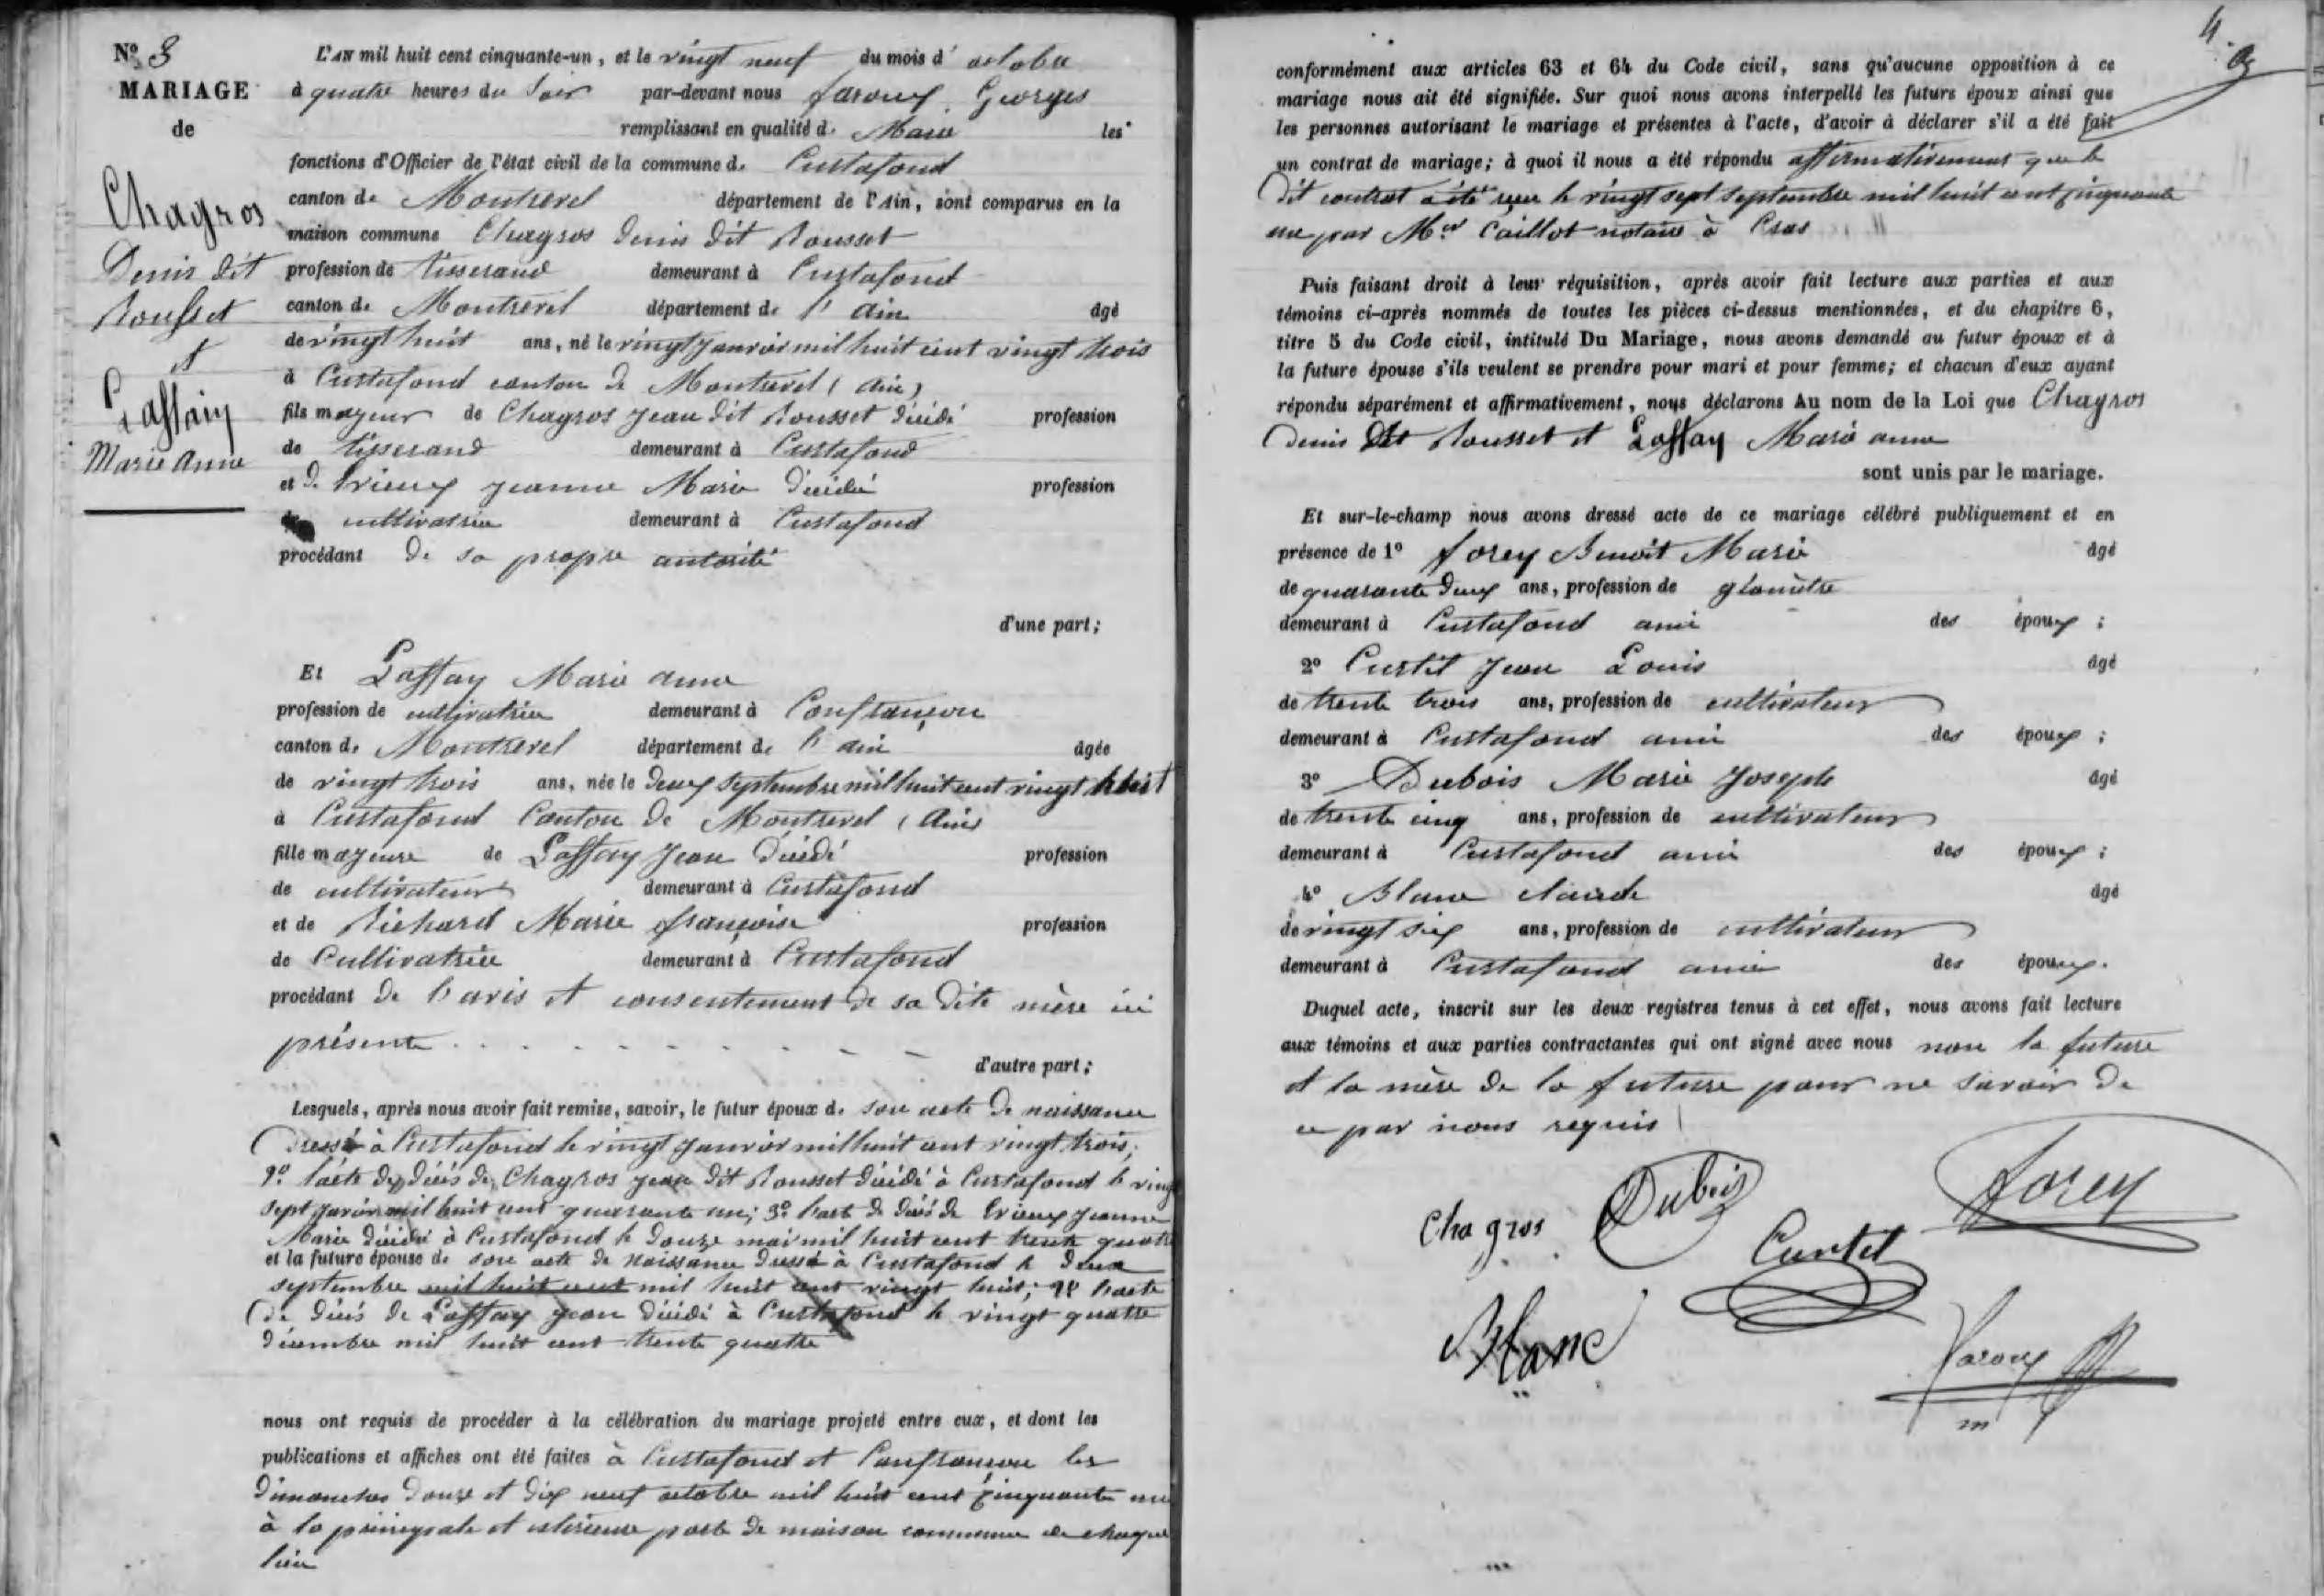 Nº 3
MARIAGE
de
Chagros
Denis dit
Rousset
et
Laffay
Marie Anne
L'AN mil huit cent cinquante-un, et le vingt neuf du mois d' octobre
à quatre heures du soir par-devant nous faroux Georges
remplissant en qualité de Maire les
fonctions d'Officier de l'état civil de la commune de Curtafond
canton de Montrevel département de l'Ain, sont comparus en la
maison commune Chagros Denis dit Rousset
profession de tisserand demeurant à Curtafond
canton de Montrevel département de l'ain âgé
de vingt huit ans, né le vingt janvier mil huit cent vingt trois
à Curtafond canton de Montrevel (ain)
fils majeur de Chagros Jean dit Rousset décédé profession
de tisserand demeurant à Curtafond
et de Jeanne Marie décédée profession
cultivatrice demeurant à Curtafond
procédant de sa propre autorité
d'une part;
Et Laffay Marie anne
profession de cultivatrice demeurant à Confrançon
canton de Montrevel département de l'ain âgée
de vingt trois ans, née le deux septembre mil huit cent vingt huit
à Curtafond Canton de Montrevel (Ain)
fille majeure de Laffay Jean décédé profession
de cultivateur demeurant à Curtafond
et de Richard Marie françoise profession
de Cultivatrice demeurant à Curtafond
procédant de l'avis et consentement de sa dite mère ici
présente
d'autre part;
Lesquels, après nous avoir fait remise, savoir, le futur époux de son acte de naissance
Dressé à Curtafond le vingt janvier mil huit cent vingt trois;
2º l'acte de décès de Chagros jean dit Rousset décédé à Curtafond le vingt
sept janvier mil huit cent quarante un; 3º l'acte de décès de Jeanne
Marie décédée à Curtafond le douze mai mil huit cent trente quatre
et la future épouse de son acte de naissance dressé à Curtafond le deux
septembre mil huit cent mil huit cent vingt huit; 2º l'acte
de décès de Laffay Jean décédé à Curtafond le vingt quatre
décembre mil huit cent trente quatre
nous ont requis de procéder à la célébration du mariage projeté entre eux, et dont les
publications et affiches ont été faites à Curtafond et Confrançon les
dimanches douze et dix neuf octobre mil huit cent cinquante un
à la principale et extérieure porte de maison commune de chaque
lieu
4.
conformément aux articles 63 et 64 du Code civil, sans qu'aucune opposition à ce
mariage nous ait été signifiée. Sur quoi nous avons interpellé les futurs époux ainsi que
les personnes autorisant le mariage et présentes à l'acte, d'avoir à déclarer s'il a été fait
un contrat de mariage; à quoi il nous a été répondu affirmativement que le
dit contrat a été reçu le vingt sept septembre mil huit cent cinquante
un par Mer Caillot notaire à Cras
Puis faisant droit à leur réquisition, après avoir fait lecture aux parties et aux
témoins ci-après nommés de toutes les pièces ci-dessus mentionnées, et du chapitre 6,
titre 5 du Code civil, intitulé Du Mariage, nous avons demandé au futur époux et à
la future épouse s'ils veulent se prendre pour mari et pour femme; et chacun d'eux ayant
répondu séparément et affirmativement, nous déclarons Au nom de la Loi que Chagros
Denis dit Rousset et Laffay Marie anne
sont unis par le mariage.
Et sur-le-champ nous avons dressé acte de ce mariage célébré publiquement et en
présence de 1º forey Benoit Marie âgé
de quarante deux ans, profession de géomètre
demeurant à Curtafond ami des époux;
2º Curtil Jean Louis âgé
de trente trois ans, profession de cultivateur
demeurant à Curtafond ami des époux;
3º Dubois Marie Joseph âgé
de trente cinq ans, profession de cultivateur
demeurant à Curtafond ami des époux;
4º Blanc Claude âgé
de vingt six ans, profession de cultivateur
demeurant à Curtafond ami des époux.
Duquel acte, inscrit sur les deux registres tenus à cet effet, nous avons fait lecture
aux témoins et aux parties contractantes qui ont signé avec nous non la future
et la mère de la future pour ne savoir de
ce par nous requis
Chagros Dubois Forey
Curtil
Blanc
faroux
m